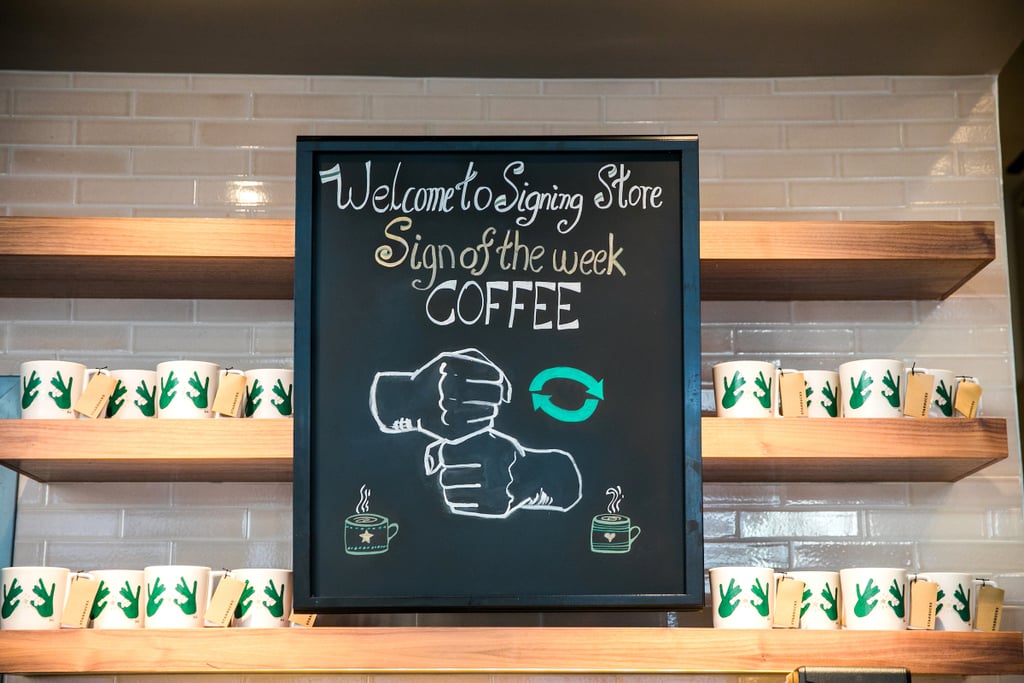 Welcome to Signing Store
Sign of the week
COFFEE